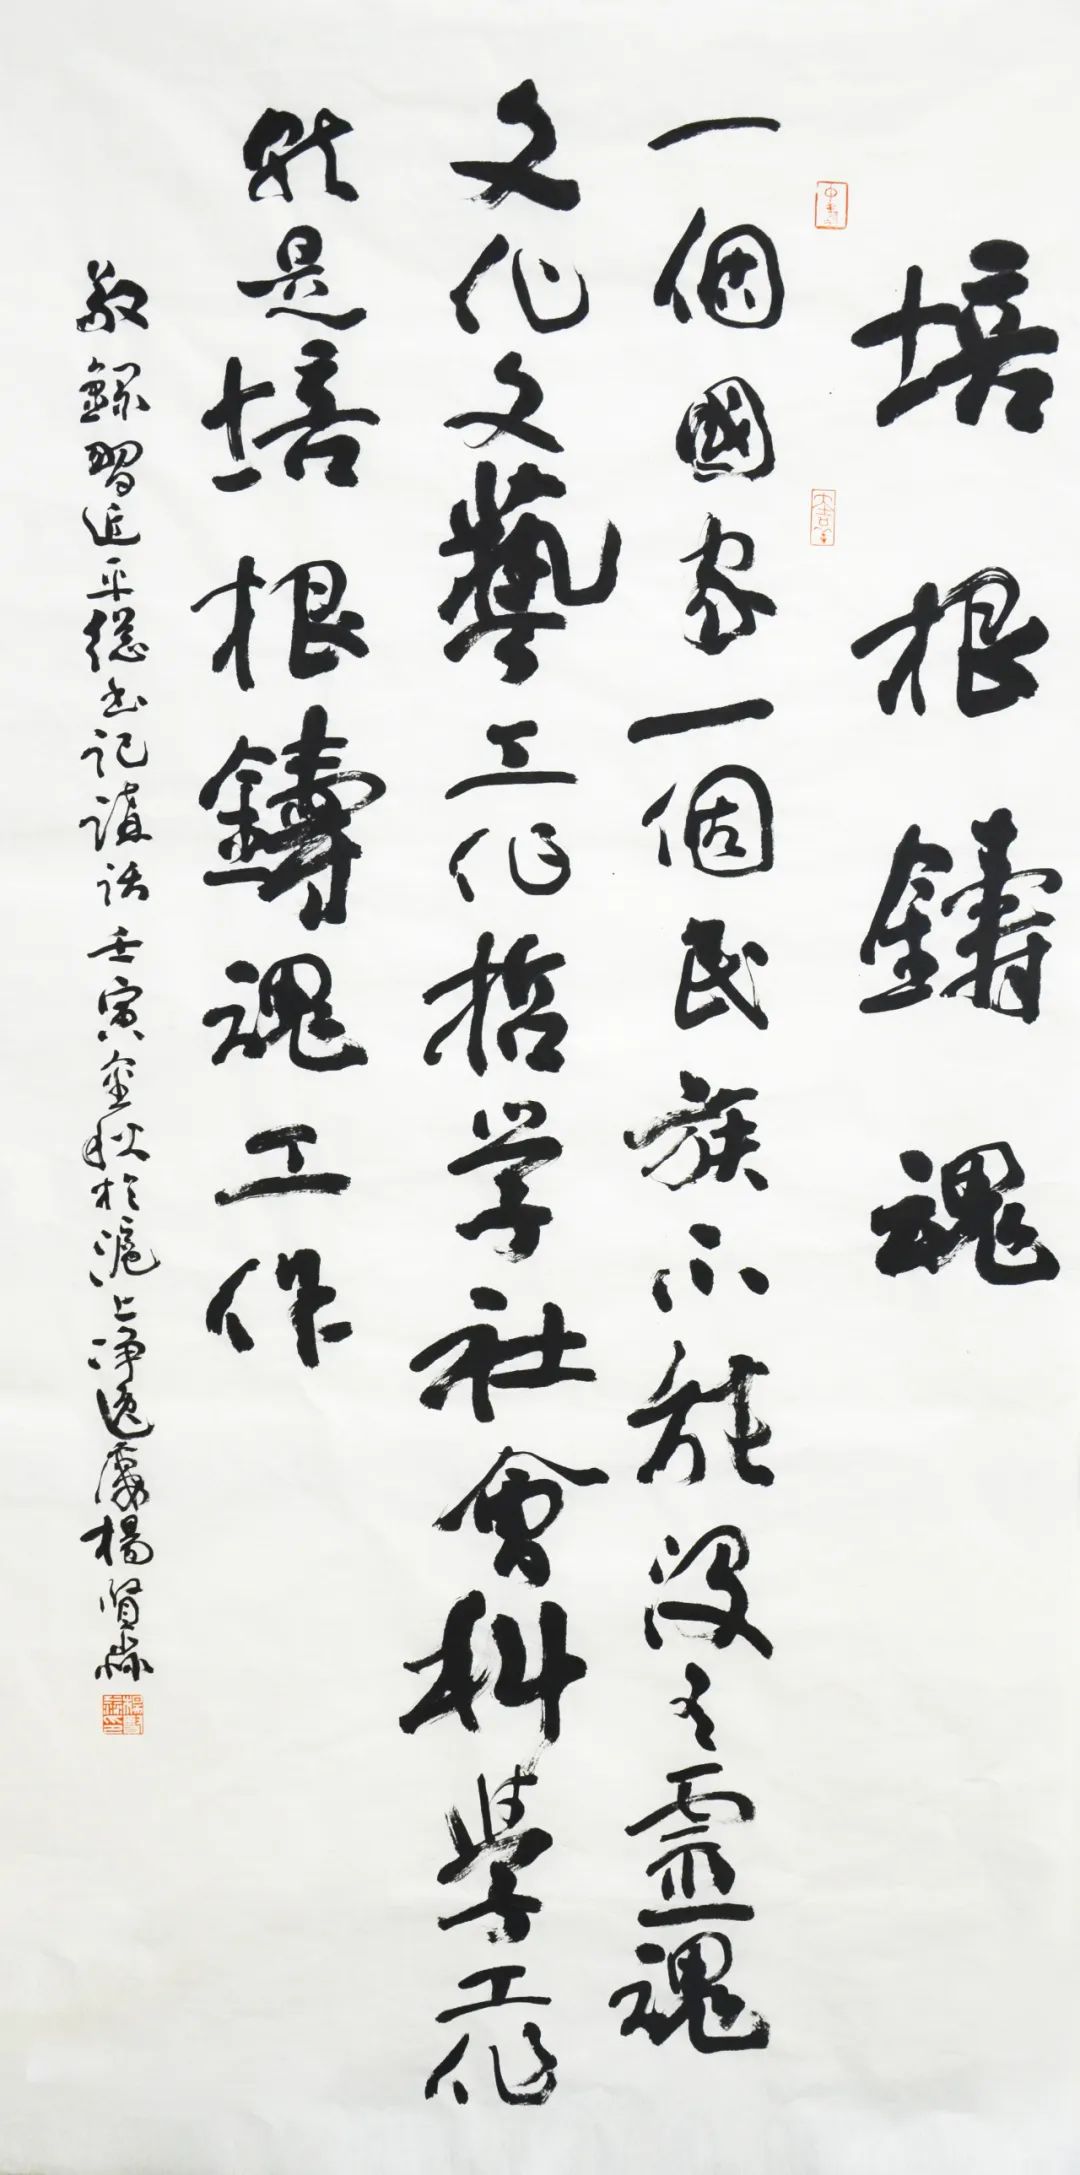 培根鑄魂
一個國家一個民族不能没有靈魂
文化文藝工作哲学社會科學工作
就是培根鑄魂工作
敬錄習近平總书記講話壬寅金秋於滬上淨逸廬楊賢淼